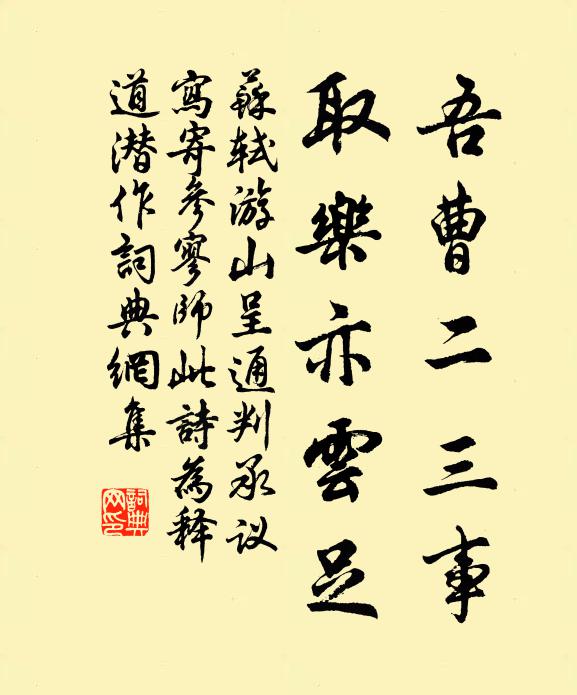 吾曹二三事
取樂亦雲足
蘇軾游山呈通判承议
寫寄參寥師此詩為释
道潜作詞典網集
詞典网印